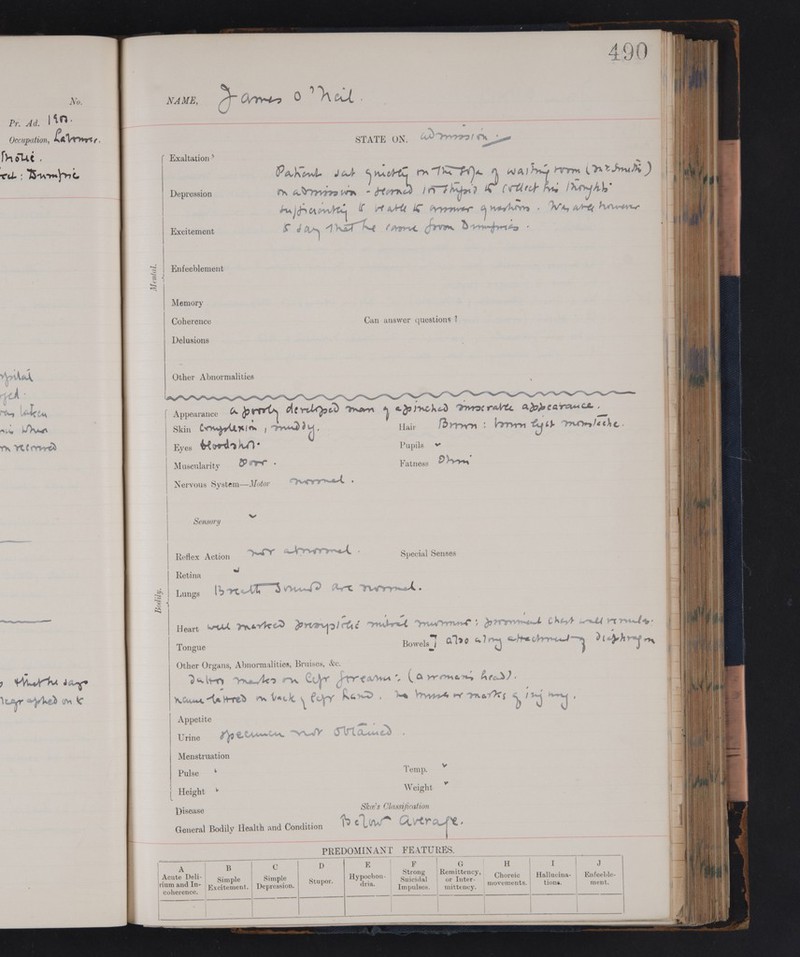 490
No.
NAME, James O'Neil.
Pr. Ad. 190
Occupation, Labourer.
STATE ON. admission
Exaltation?
Patient sat quietly on the sofa of waiting room (Dr. Smith's)
Depression
on admission - seemed too stupid to collect his thoughts
sufficiently to be able to answer questions. Was able however
Excitement
to say that he came from Dumfries.
Enfeeblement
Mental.
Memory
Coherence Can answer questions?
Delusions
Other Abnormalities
Appearance a poorly developed man of a pinched miserable appearance.
Skin Complexion, muddy. Hair Brown: brown light moustache.
Eyes bloodshot. Pupils
Muscularity Poor. Fatness Thin
Nervous System—Motor normal.
Sensory
Reflex Action not abnormal. Special Senses
Retina
Bodily.
Lungs Breath sounds are normal.
Heart well marked presystolic mitral murmur: chest wall
Tongue Bowels also along attachment of diaphragm
Other Organs, Abnormalities, Bruises, &c.
Tattoo marks on left forearm: (a woman's head).
name tattooed on back of left hand. no bruise or marks of injury.
Appetite
Urine specimen not obtained.
Menstruation
Pulse Temp.
Height Weight
Disease Skae's Classification
General Bodily Health and Condition Below average.
PREDOMINANT FEATURES.
A B C D E F G H I J
Acute Delirium and Incoherence. Simple Excitement. Simple Depression. Stupor. Hypochondria. Strong Suicidal Impulses. Remittency, or Intermittency. Choreic movements. Hallucinations. Enfeeblement.